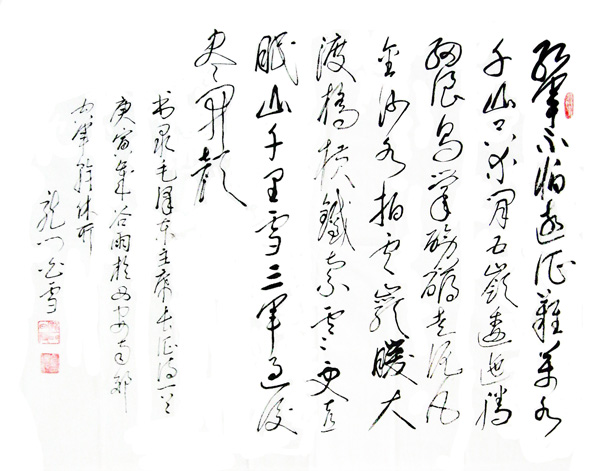 红军不怕远征难万水
千山只等闲五岭逶迤腾
细浪乌蒙磅礴走泥丸
金沙水拍云崖暖大
渡桥横铁索寒更喜
岷山千里雪三军过后
尽开颜
书录毛泽东主席长征诗一首
庚寅年谷雨於西安南郊
空军干休所
龙门